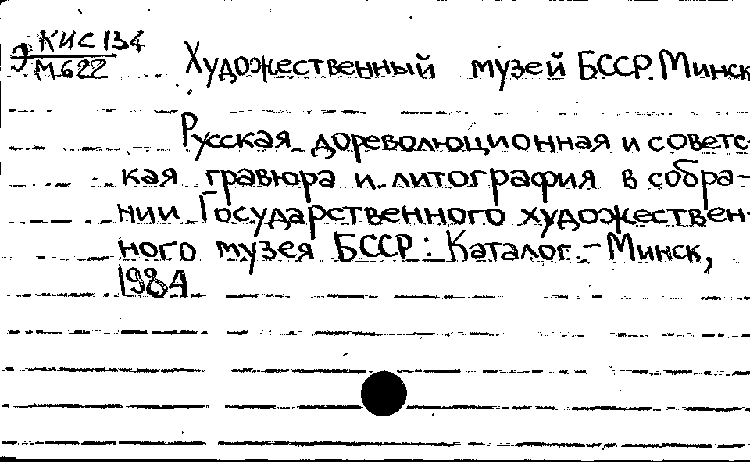 Э КИС 134
М622
Художественный музей БССР. Минск
Русская дореволюционная и советс-
кая гравюра и литография в собра-
нии Государственного художествен-
ного музея БССР: Каталог. - Минск,
198